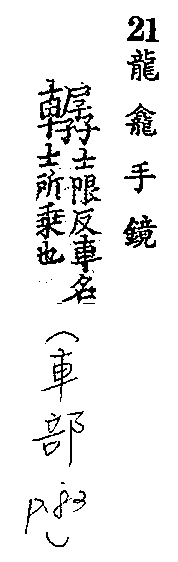 21 龍龕手鏡
轏士限反車名
士所乘也
（車部